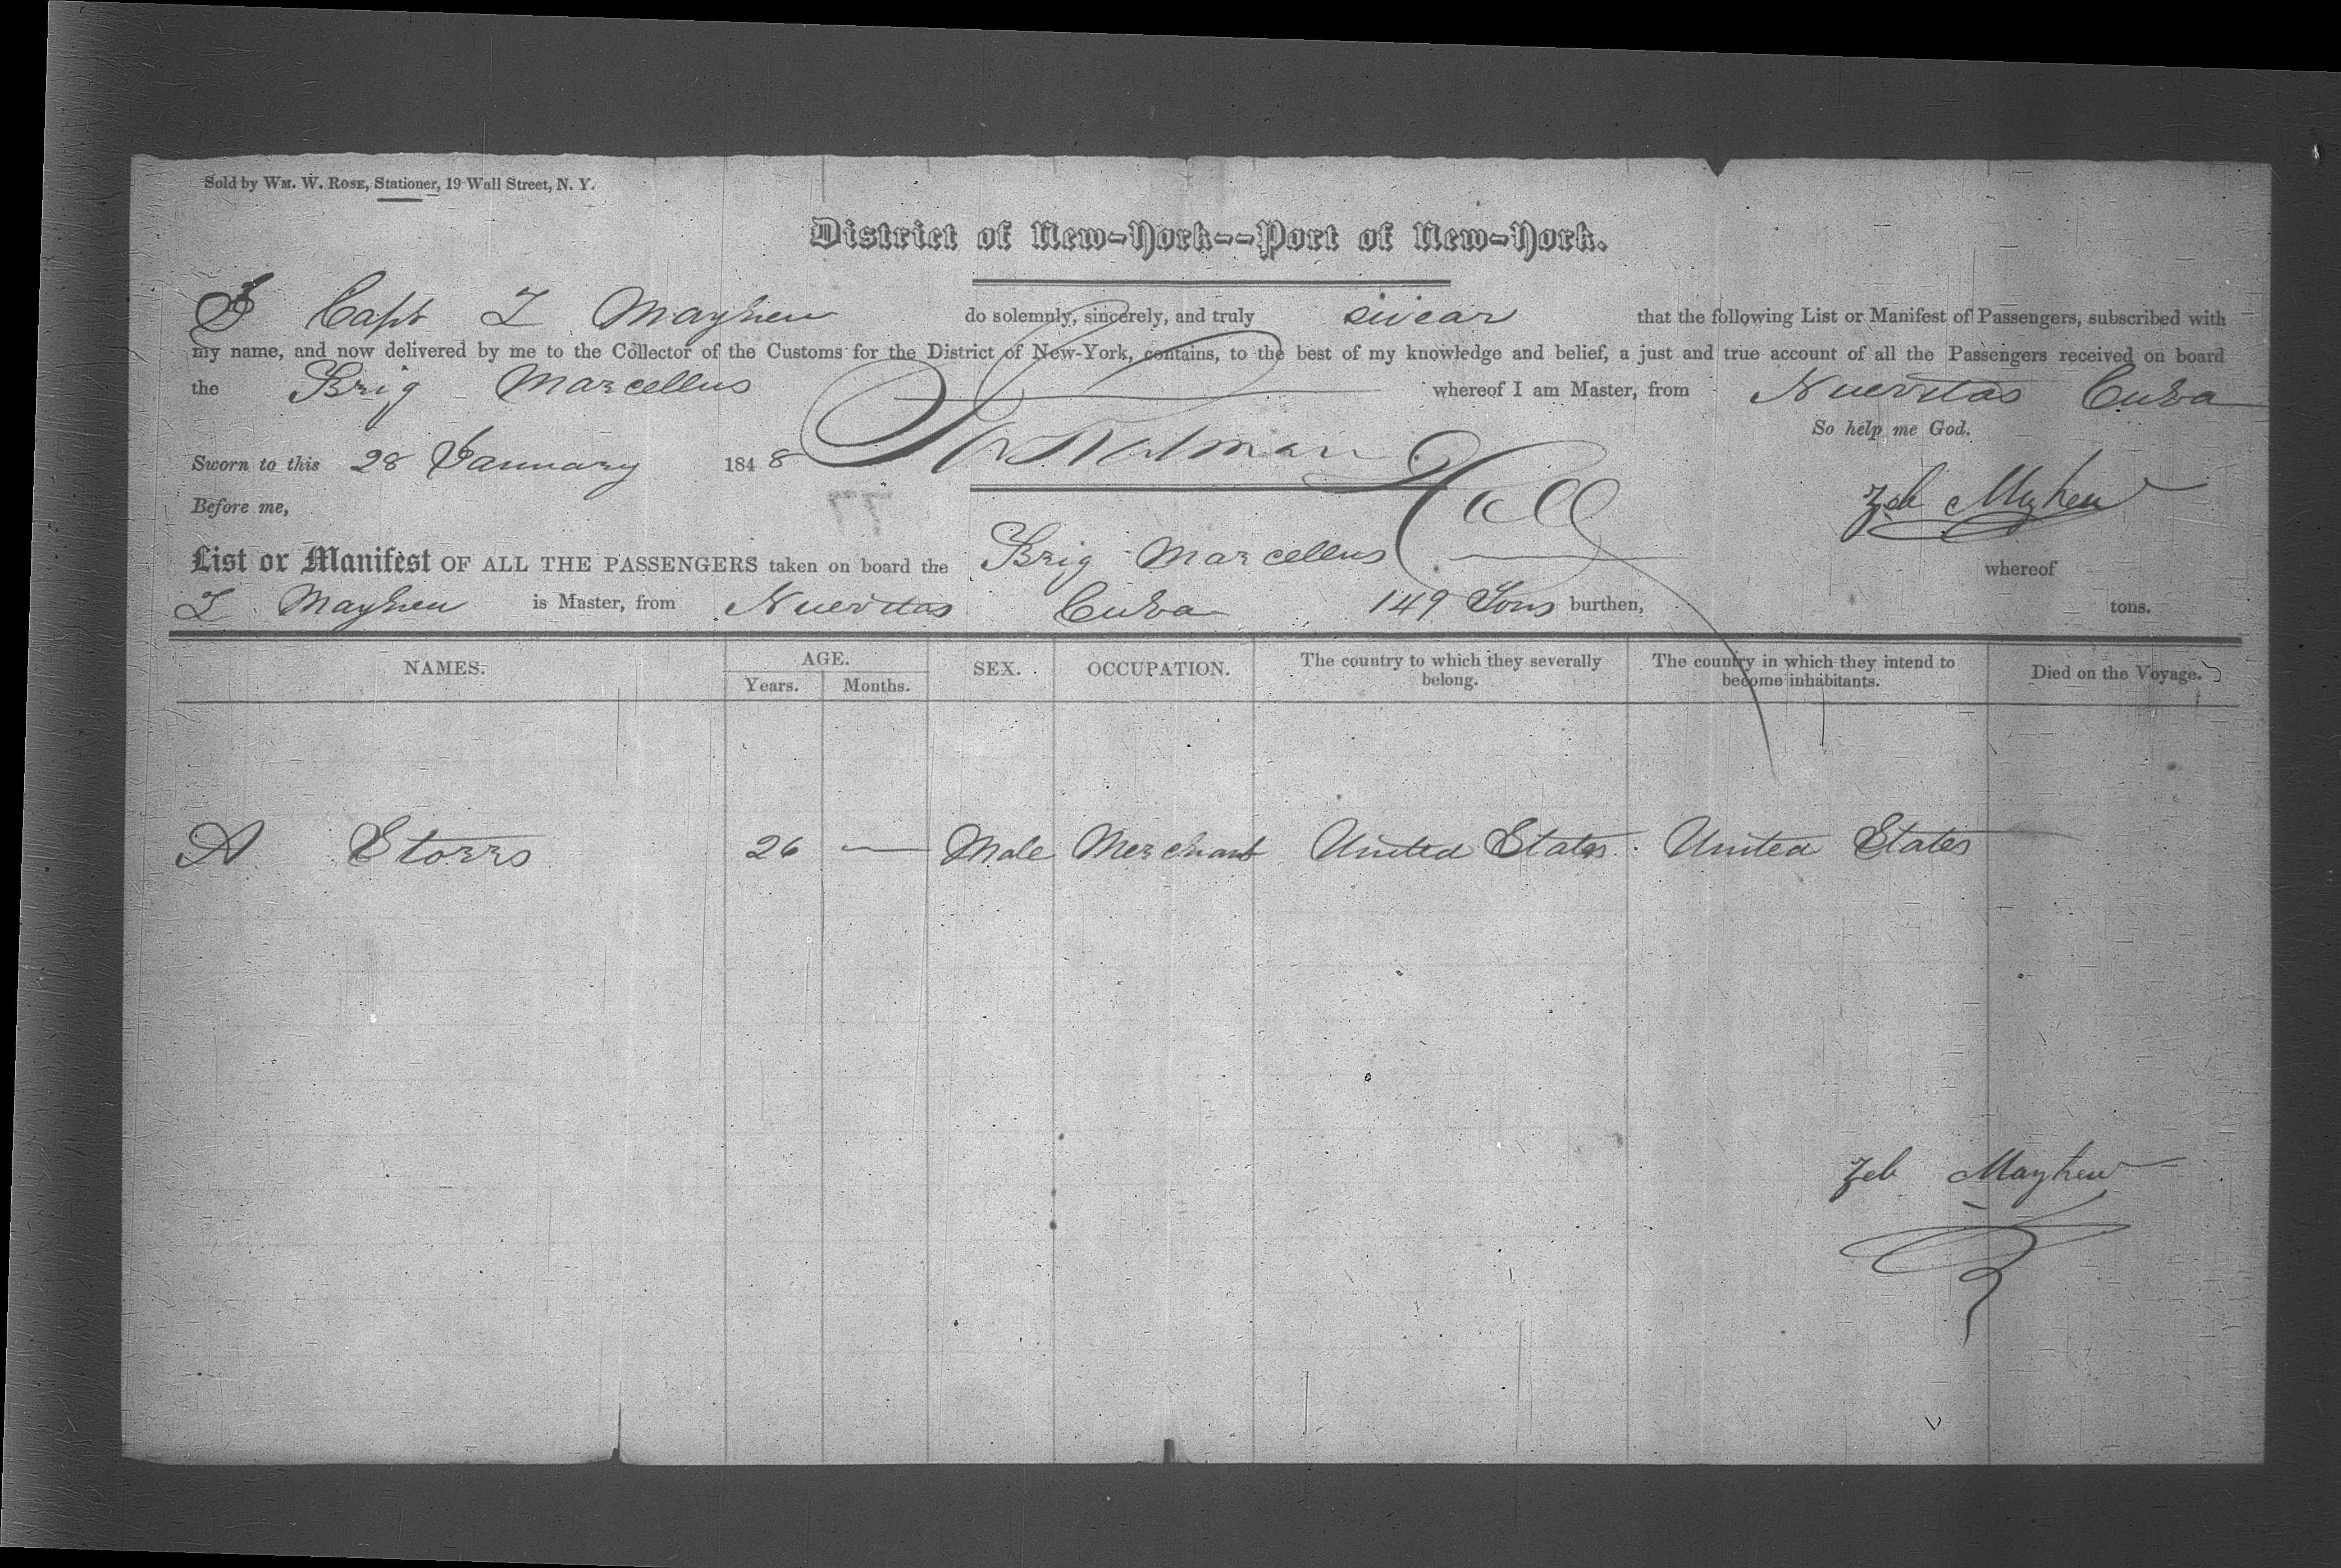 Sold by WM. W. ROSE, Stationer, 19 Wall Street, N. Y.
District of New-York--Port of New-York.
I Capt Z Mayhew do solemnly, sincerely, and truly swear that the following List or Manifest of Passengers, subscribed with
my name, and now delivered by me to the Collector of the Customs for the District of New-York, contains, to the best of my knowledge and belief, a just and true account of all the Passengers received on board
the Brig Marcellus whereof I am Master, from Nuevitas Cuba
So help me God.
Sworn to this 28 January 1848
Zeb Mayhew
Before me, Hall
77
List or Manifest OF ALL THE PASSENGERS taken on board the Brig Marcellus whereof
Z Mayhew is Master, from Nuevitas Cuba 149 Tons burthen, tons.
NAMES. AGE. SEX. OCCUPATION. The country to which they severally belong. The country in which they intend to become inhabitants. Died on the Voyage.
Years. Months.
A Storrs 26 — Male Merchant United States United States
Zeb Mayhew